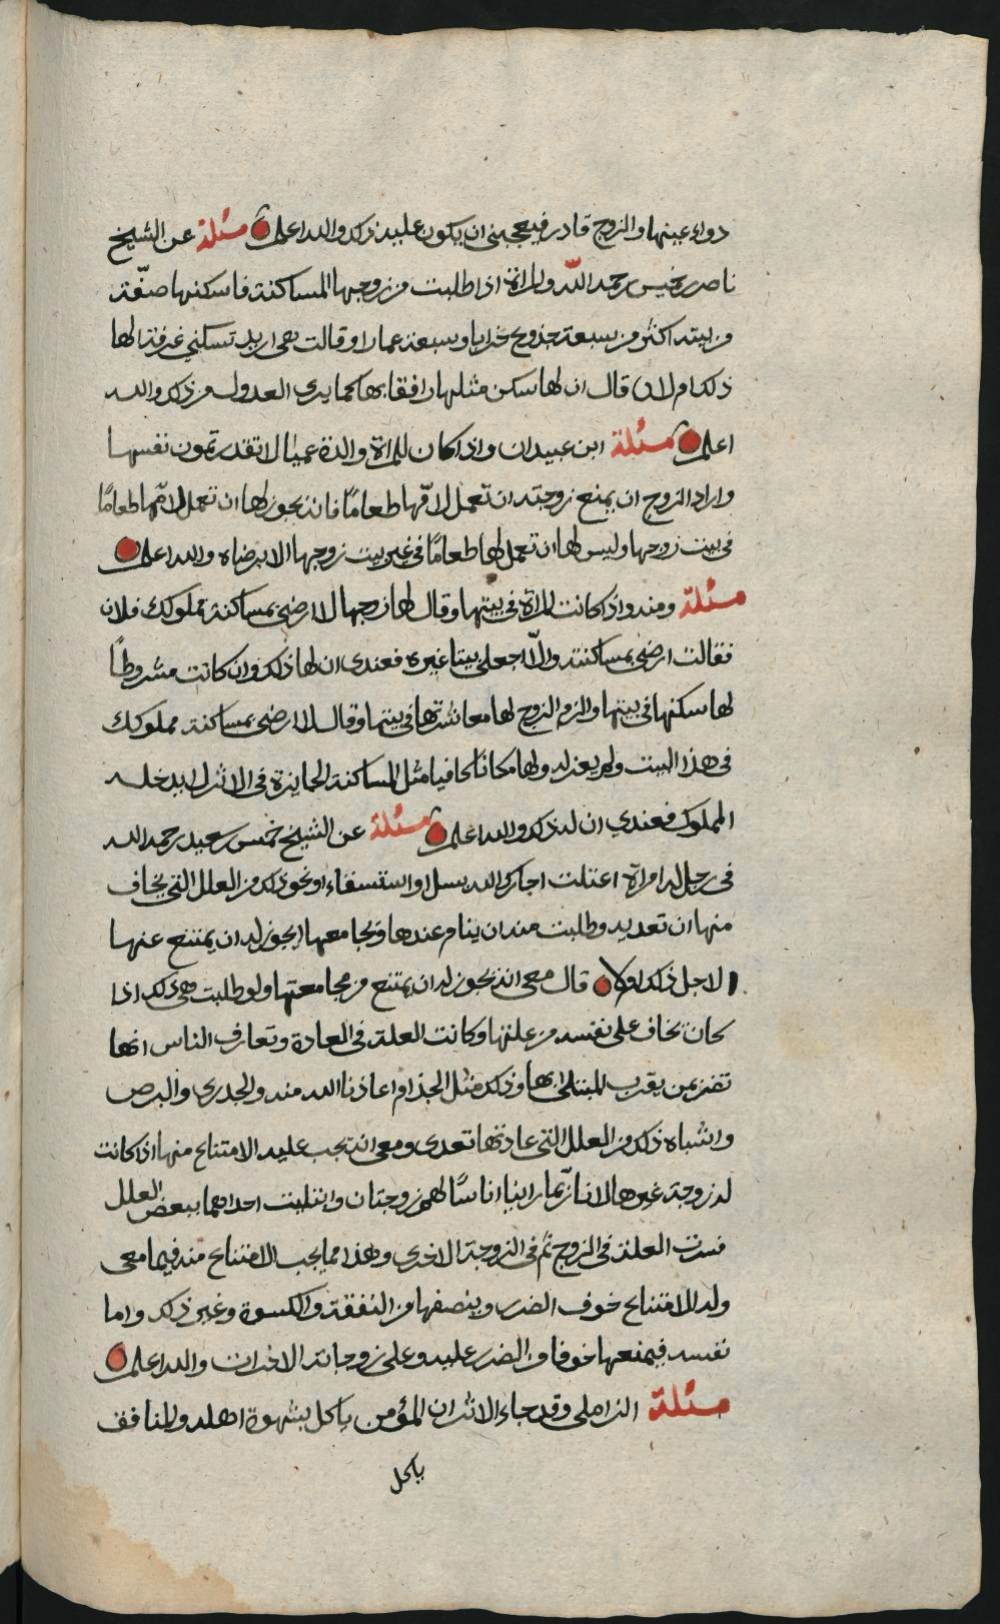 دواء عينها والزوج قادر فيعجبني ان يكون عليه ذلك والله اعلم مسئلة عن الشيخ
ناصر بن خميس رحمه الله والمراة اذا طلبت من زوجها المساكنة فاسكنها صفّة
من بيته اكثر من سبعة جذوع خرابا وسبعة عمارا وقالت هي اريد تسكني غرفة الها
ذلك ام لا قال ان لها سكن مثلها رافقا بها كما يرى العدول من ذلك والله
اعلم مسئلة ابن عبيدان واذا كان للمراة والدة عمياء لا تقدر تمون نفسها
واراد الزوج ان يمنع زوجته ان تعمل لامّها طعامًا فانه يجوز لها ان تعمل لامّها طعامًا
في بيت زوجها وليس لها ان تعمل لها طعامًا في غير بيت زوجها الا برضاه والله اعلم
مسئلة ومنه واذا كانت المراة في بيتها وقال لها زوجها لا ارضى بمساكنة مملوكك فلان
فقالت ارضى بمساكنته والّا اجعلي بيتا غيره فعندي ان لها ذلك وان كانت مشروطًا
لها سكنها في بيتها والزم الزوج لها معاشرتها في بيتها وقال لا ارضى بمساكنة مملوكك
في هذا البيت ولم يعزله ولها مكانا كافيا مثل المساكنة الجايزة في الاثر لا يدخله
المملوك فعندي ان له ذلك والله اعلم مسئلة عن الشيخ خميس بن سعيد رحمه الله
في رجل له امراة اعتلت اجارك الله بسل او استسقاء او نحو ذلك من العلل التي يخاف
منها ان تعديه وطلبت منه ان ينام عندها ويجامعها ايجوز له ان يمتنع عنها
لاجل ذلك ام لا قال معي انه يجوز له ان يمتنع من مجامعتها ولو طلبت هي ذلك اذا
كان يخاف على نفسه من علتها وكانت العلة في العادة وتعارف الناس انها
تضر بمن يقرب المبتلى بها وذلك مثل الجذام اعاذنا الله منه والجدري والبرص
واشباه ذلك من العلل التي عادتها تعدي ومعي انه يجب عليه الامتناع منها اذا كانت
له زوجة غيرها لانا ربّما راينا اناسًا لهم زوجتان وابتليت احداهما ببعض العلل
فسرت العلة في الزوج ثم في الزوجة الاخرى وهذا مما يجب الامتناع منه فيما معي
وله الامتناع خوف الضرر وينصفها من النفقة والكسوة وغير ذلك واما
نفسه فيمنعها خوفا من الضرر عليه وعلى زوجاته الاخرات والله اعلم
مسئلة الزاملي وقد جاء الاثر ان المؤمن ياكل بشهوة اهله والمنافق
ياكل